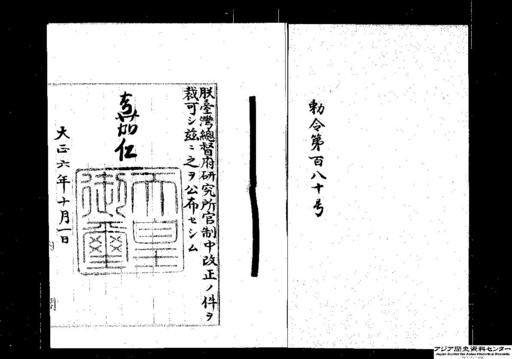 勅令第百八十号
朕臺灣總督府研究所官制中改正ノ件ヲ
裁可シ茲ニ之ヲ公布セシム
嘉仁
天皇
御璽
大正六年十月一日
アジア歴史資料センター
Japan Center for Asian Historical Records